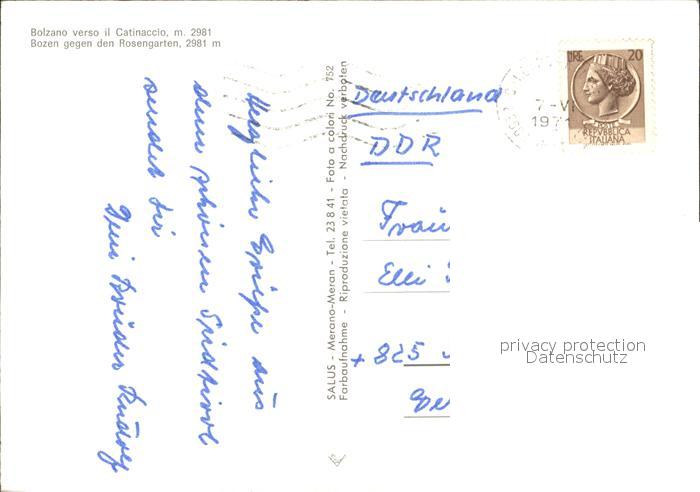 Bolzano verso il Catinaccio, m. 2981
Bozen gegen den Rosengarten, 2981 m
Herzliche Grüße aus
dem schönen Südtirol
sendet dir
Dein Bruder Rudolf
SALUS - Merano-Meran - Tel. 23 8 41 - Foto a colori No. 752
Farbaufnahme - Riproduzione vietata - Nachdruck verboten
Deutschland
DDR
Frau
Elli
825
7-VI
1971
LIRE 20
POSTE
REPVBBLICA
ITALIANA
privacy protection
Datenschutz